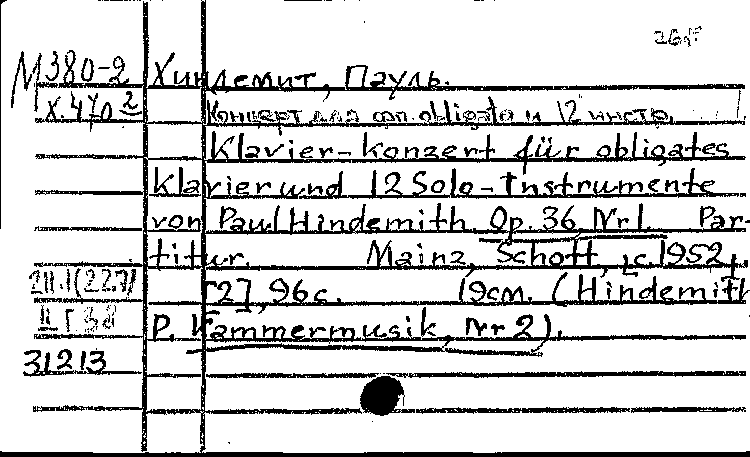 М380-2 Хиндемит, Пауль.
Х.470² Концерт для фп. obligato и 12 инстр.
Klavier-konzert für obligates
Klavier und 12 Solo-Instrumente
von Paul Hindemith. Op. 36, Nr 1. Par-
titur. Mainz, Schott, [c. 1952].
[2], 96 с. 19 см. (Hindemith
P. Kammermusik, Nr 2).
31213